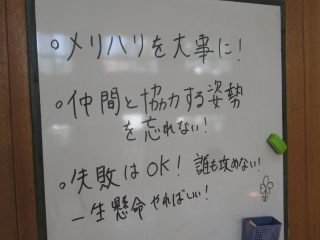 ○メリハリを大事に!
○仲間と協力する姿勢
を忘れない!
○失敗はOK! 誰も攻めない!
一生懸命やればいい!